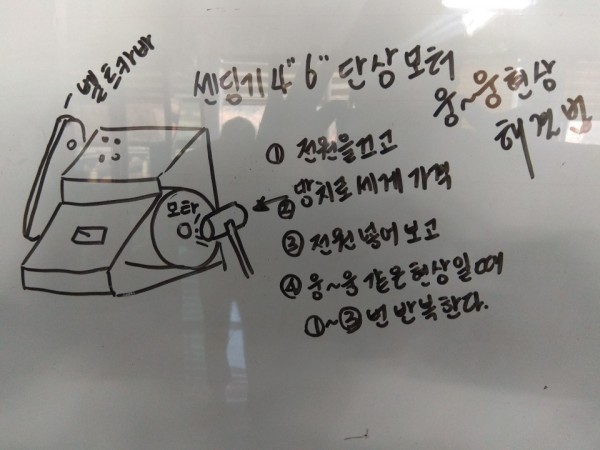 벨트카바
센딩기 4" 6" 단상모터
웅~웅현상
해결법
① 전원을끄고
② 망치로 세게 가격
③ 전원 넣어 보고
④ 웅~웅 같은 현상일때
①~③번 반복한다.
모타